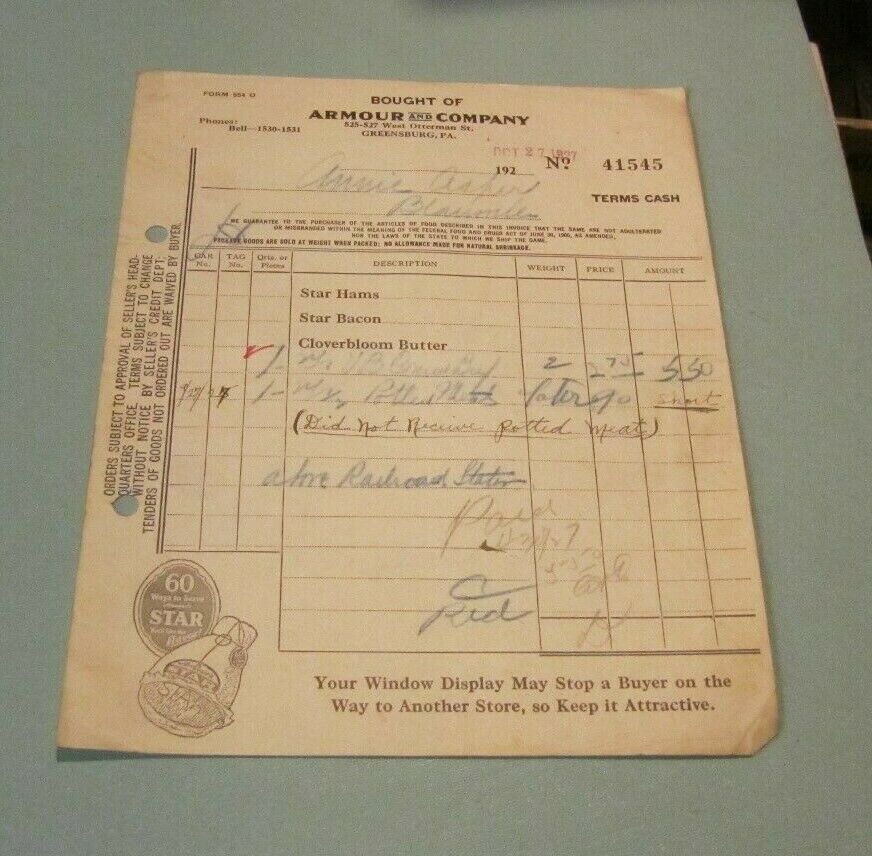 FORM 554 O
BOUGHT OF
ARMOUR AND COMPANY
Phones:
Bell—1530-1531
525-527 West Otterman St.
GREENSBURG, PA.
OCT 27 1927
192 No. 41545
Annie
TERMS CASH
WE GUARANTEE TO THE PURCHASER OF THE ARTICLES OF FOOD DESCRIBED IN THIS INVOICE THAT THE SAME ARE NOT ADULTERATED
OR MISBRANDED WITHIN THE MEANING OF THE FEDERAL FOOD AND DRUGS ACT OF JUNE 30, 1906, AS AMENDED,
NOR THE LAWS OF THE STATE TO WHICH WE SHIP THE SAME.
PACKAGE GOODS ARE SOLD AT WEIGHT WHEN PACKED; NO ALLOWANCE MADE FOR NATURAL SHRINKAGE.
CAR No. TAG No. Qrts. or Pieces DESCRIPTION WEIGHT PRICE AMOUNT
Star Hams
Star Bacon
Cloverbloom Butter
1- 2 275 550
1- Potted Meat short
(Did Not Receive potted meat)
above Railroad Station
Paid
Red
ORDERS SUBJECT TO APPROVAL OF SELLER'S HEAD-
QUARTERS OFFICE. TERMS SUBJECT TO CHANGE
WITHOUT NOTICE BY SELLER'S CREDIT DEPT.
TENDERS OF GOODS NOT ORDERED OUT ARE WAIVED BY BUYER.
60
Ways to Serve
STAR
STAR
Your Window Display May Stop a Buyer on the
Way to Another Store, so Keep it Attractive.